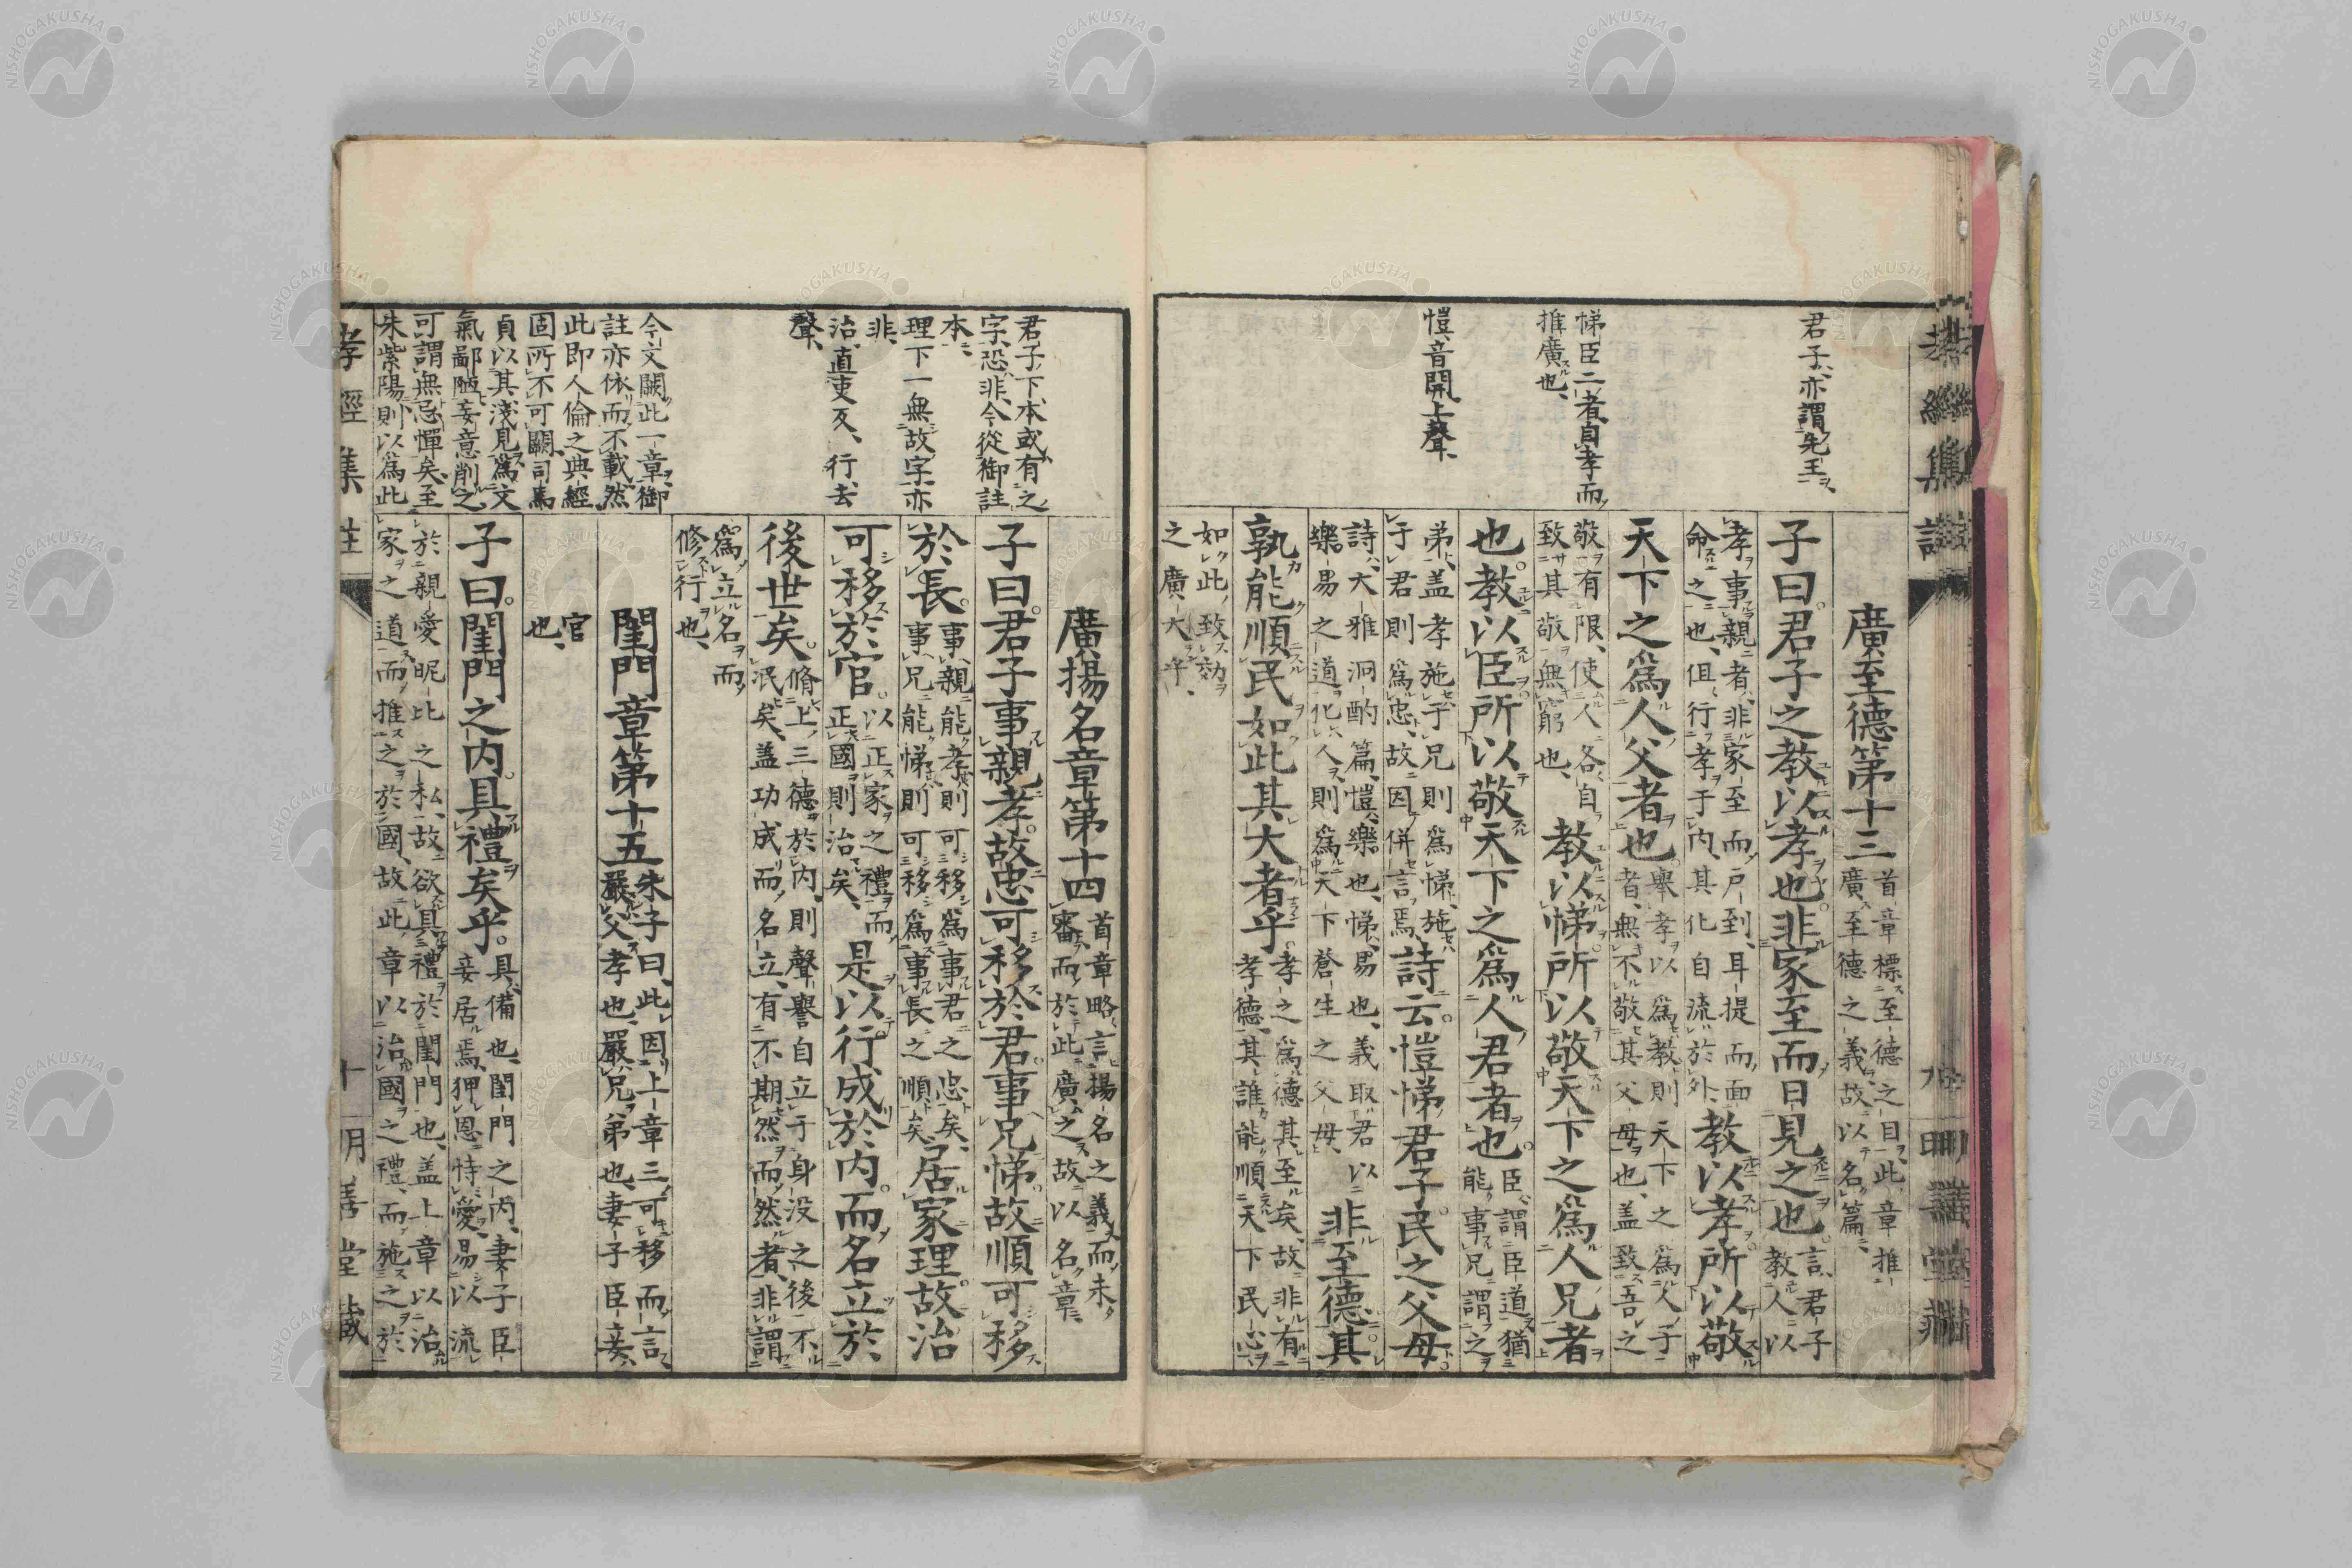 君子亦謂先王
悌臣二者自孝而
推廣也
愷音開上聲
廣至德第十三首章標至德之目此章推
廣至德之義故以名篇
子曰君子之教以孝也非家至而日見之也言君子
教人以
孝事親者非家至而戶到耳提而面
命之也但行孝于內其化自流於外教以孝所以敬
天下之爲人父者也舉孝以爲教則天下之爲人子
者無不敬其父母也盖致吾之
敬有限使人各自
致其敬無窮也教以悌所以敬天下之爲人兄者
也教以臣所以敬天下之爲人君者也臣謂臣道猶
能事兄謂之
弟盖孝施于兄則爲悌施
于君則爲忠故因併言焉詩云愷悌君子民之父母
詩大雅泂酌篇愷樂也悌易也義取君以
樂易之道化人則爲天下蒼生之父母非至德其
孰能順民如此其大者乎孝之爲德其至矣故非有
孝德其誰能順天下民心
如此致効
之廣大乎
君子下本或有之
字恐非今從御註
本
理下一無故字亦
非
治直吏反行去
聲
今文闕此一章御
註亦依而不載然
此即人倫之典經
固所不可闕司馬
貞以其淺見爲文
氣鄙陋妄意削之
可謂無忌憚矣至
朱紫陽則以爲此
廣揚名章第十四首章略言揚名之義而未
審而於此廣之故以名章
子曰君子事親孝故忠可移於君事兄悌故順可移
於長事親能孝則可移爲事君之忠矣
事兄能悌則可移爲事長之順矣居家理故治
可移於官以正家之禮而
正國則治矣是以行成於內而名立於
後世矣脩上三德於內則聲譽自立于身没之後不
泯矣盖功成而名立有不期然而然者非謂
爲立名而
修行也
閨門章第十五朱子曰此因上章三可移而言
嚴父孝也嚴兄弟也妻子臣妾
官
也
子曰閨門之內具禮矣乎具備也閨門之內妻子臣
妾居焉狎恩恃愛易以流
於親愛昵比之私故欲具禮於閨門也盖上章以治
家之道而推之於國故此章以治國之禮而施之於
孝經集註
十
明善堂藏